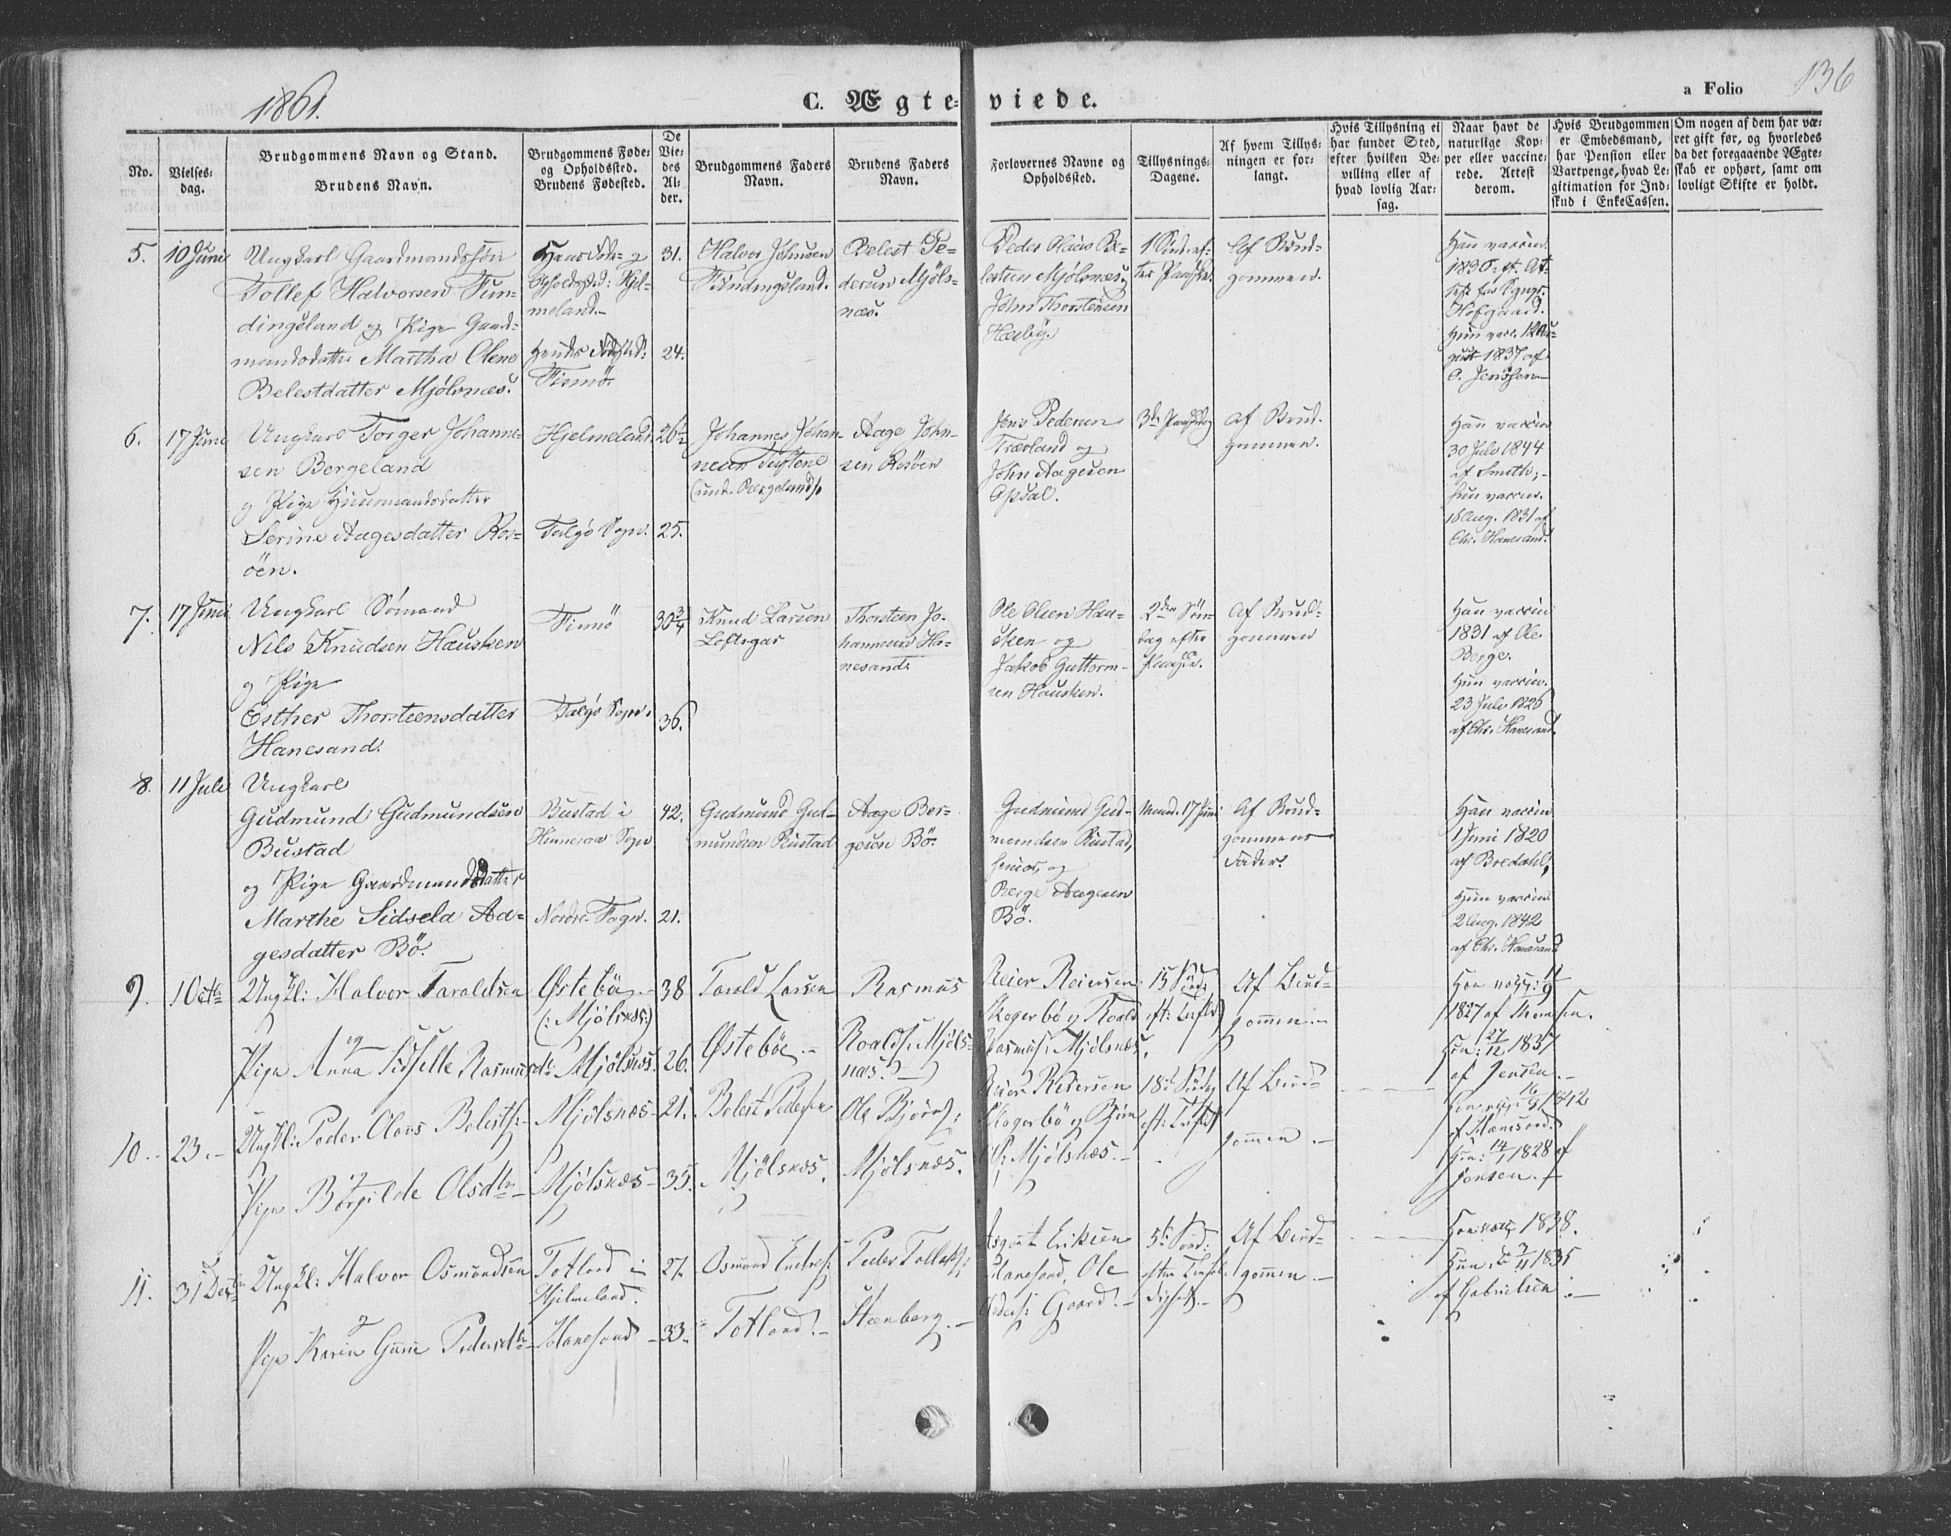 1861.
C. Ægteviede.
a Folio 136
No.
Vielsesdag.
Brudgommens Navn og Stand.
Brudens Navn.
Brudgommens Føde- og Opholdssted.
Brudens Fødested.
De Viedes Alder.
Brudgommens Faders Navn.
Brudens Faders Navn.
Forlovernes Navne og Opholdssted.
Tillysnings-Dagene.
Af hvem Tillysningen er forlangt.
Hvis Tillysning ei har fundet Sted, efter hvilken Bevilling eller af hvad lovlig Aarsag.
Naar havt de naturlige Kopper eller vaccinerede. Attest derom.
Hvis Brudgommen er Embedsmand, har Pension eller Vartpenge, hvad Legitimation for Indskud i EnkeCassen.
Om nogen af dem har været gift før, og hvorledes da det foregaaende Ægteskab er ophørt, samt om lovligt Skifte er holdt.
5.
10 Juni
Ungkarl Gaardmandssøn
Tollef Halvorsen Fun-
dingsland og Pige Gaard-
mandsdatter Martha Olene
Belestdatter Mjölsnes.
Hans Føde- og
Opholdssted: Hjel-
meland.
Hendes Fødested:
Finnö.
31.
24.
Halvor Johnsen
Fundingsland.
Belest Pe-
dersen Mjöls-
næs.
Peder Olaus Be-
lestsen Mjölsnæs og
John Thorstensen
1 Sønd. ef-
ter Paaske.
Af Brud-
gommen.
Han vaccin.
Hun vacc.
1837 af
6.
17 Juni
Ungkarl Torger Johanne-
sen Bergeland
og Pige Huusmandsdatter
Serine Aagesdatter Ros-
öen.
Hjelmeland
Talgö Sogn.
26½
25.
Johannes Johan-
nesen
(under Bergeland).
Aage John-
sen Rosöen
Jens Pedersen
og
John Aagesen
Opsal.
3de Paaskedag
af Brud-
gommen.
Han vaccin.
30 Juli 1844
af Smith;
hun vaccin.
16 Aug. 1831 af
Chr. Hanesand.
7.
17 Juni
Ungkarl Sömand
Nils Knudsen Hausken
og Pige
Esther Thorsteensdatter
Hanesand.
Finnö
Talgö Sogn.
30¾
36.
Knud Larsen
Thorsteen Jo-
hannesen Ha-
nesand.
Ole Olsen Hau-
sken og
Jakob Guttorm-
sen Hausken.
2den Søn-
dag efter
Paaske.
Af Brud-
gommen
Han vaccin.
1831 af Ole
Berge.
Hun vaccin.
23 Juli 1826
af Chr. Hanesand.
8.
11 Juli
Ungkarl
Gudmund Gudmundsen
Bustad
og Pige Gaardmandsdatter
Marthe Sidsela Aa-
gesdatter Bö.
Bustad i
Sogn
Nordre Fogn.
42.
21.
Gudmund Gud-
mundsen Bustad
Aage Ber-
gesen Bö.
Gudmund Gud-
mundsen Bustad,
senior, og
Berge Aagesen
Bö.
17 Juni
Af Brud-
gommens
Fader.
Han vaccin.
1 Juni 1820
af Bredahl,
Hun vaccin.
2 Aug. 1842
af Chr. Hanesand
9.
1 Octb.
Ungkl: Halvor Taraldsen
og
Pige Anna Sidselle Rasmusdtr
Østebö
(: Mjölsnæs:)
Mjölsnæs.
38
26.
Tarald Larsen
Østeböe.
Rasmus
Roalds: Mjöls-
næs.
Reier Reiersen
Skogerbö og Roald
Rasmus: Mjölsnæs.
15 Sönd.
eft: Trefld
Af Brud-
gommen.
Han vacc: 11/9
1827 af
Hun: 27/12 1837
af Jensen.
10.
23.
Ungkl: Peder Olavs Belests:
og
Pige Börgilde Olsdtr
Mjölsnæs
Mjölsnæs
21.
35.
Belest Pedersen
Mjölsnæs.
Ole Bjørns:
Mjölsnæs.
Reier Reiersen
Skogerbö og Bjørn
Mjölsnæs.
18de Söndg
eft: Trefld
Af Brud-
gommen.
1842
af Hanesand.
Hun: 14/1 1828 af
Jensen.
11.
31 Decbr
Ungkl: Halvor Osmundsen
og
Pige Karen Gurine Pedersdtr
Totland i
Hjelmeland.
Hanesand
27.
33.
Osmund
Totland.
Peder Tollefs:
Steenberg.
Asgaut Eriksen
Hanesand, Ole
Peders: Gaard.
5te Sönd:
efter Trefol-
dighed.
Af Brud-
gommen.
Han vacc 1838.
Hun 1835
af Gabrielsen